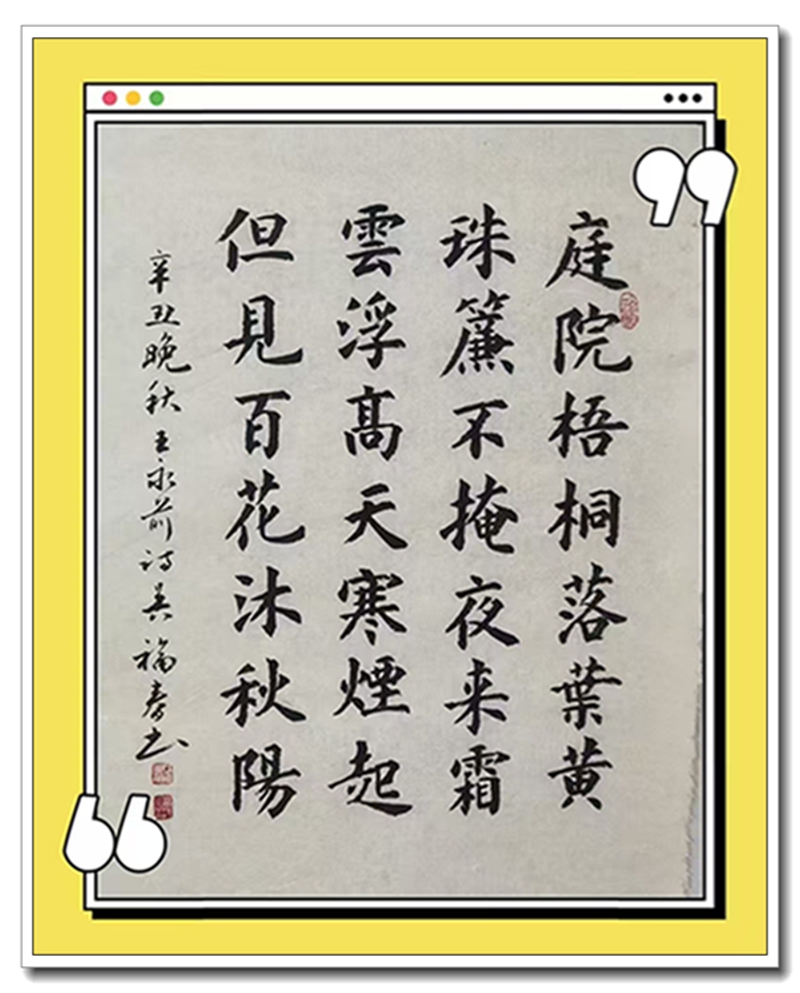 庭院梧桐落葉黄
珠簾不掩夜来霜
雲浮高天寒煙起
但見百花沐秋陽
辛丑晚秋王永前诗吴福春书